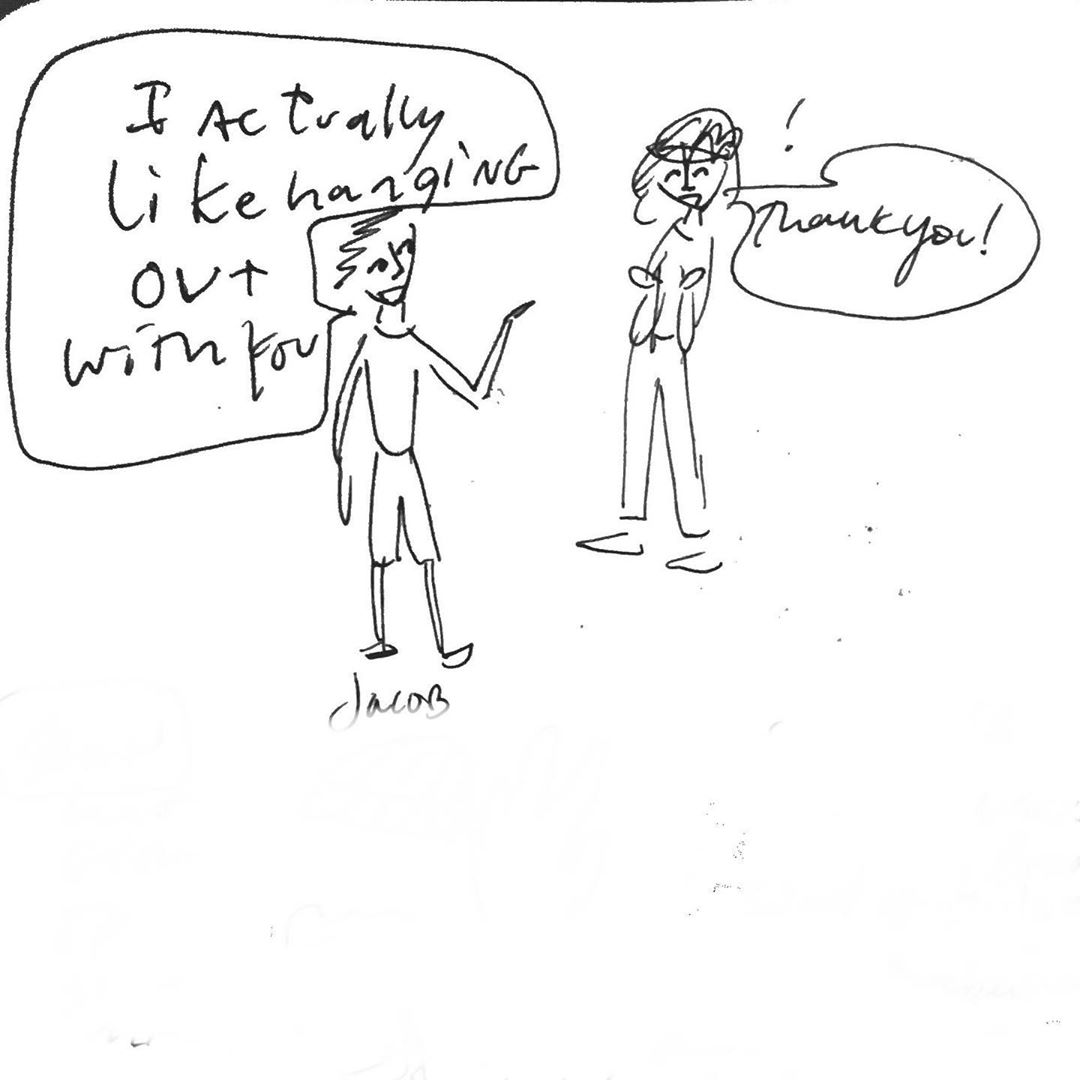 I Actually
like hanging
out
with you
!
Thank you!
Jacob